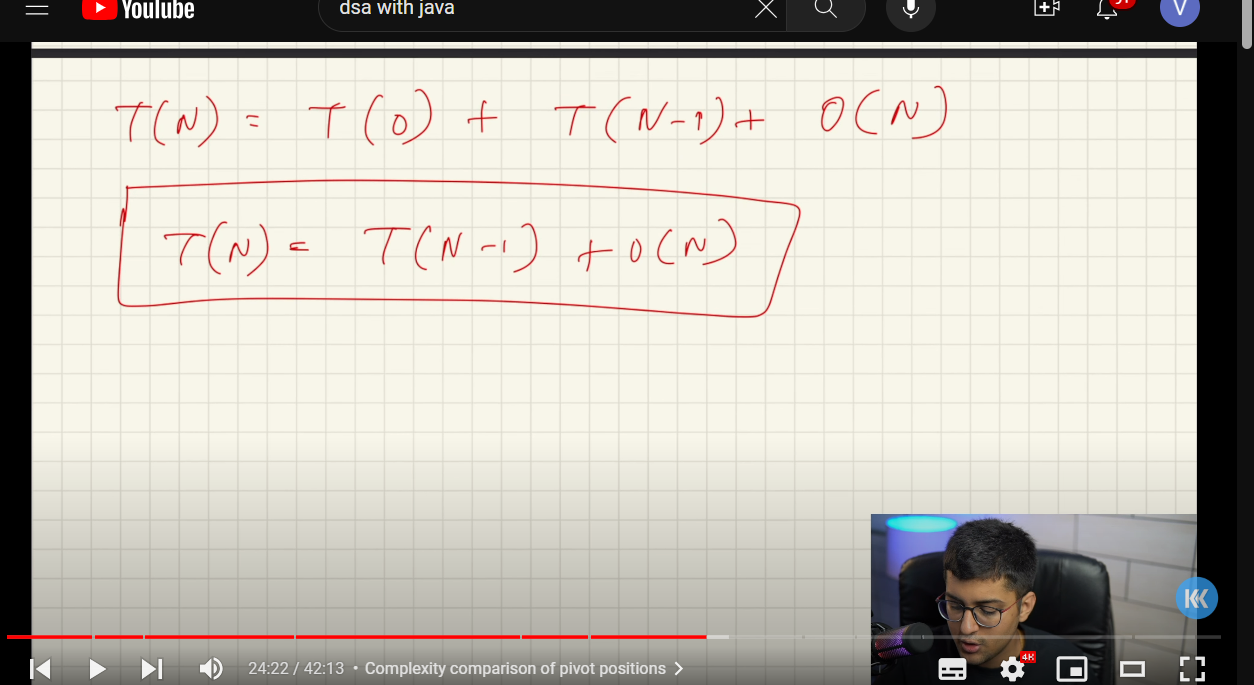 YouTube
dsa with java
V
T(N) = T(0) + T(N-1) + O(N)
T(N) = T(N-1) + O(N)
24:22 / 42:13 • Complexity comparison of pivot positions
4K